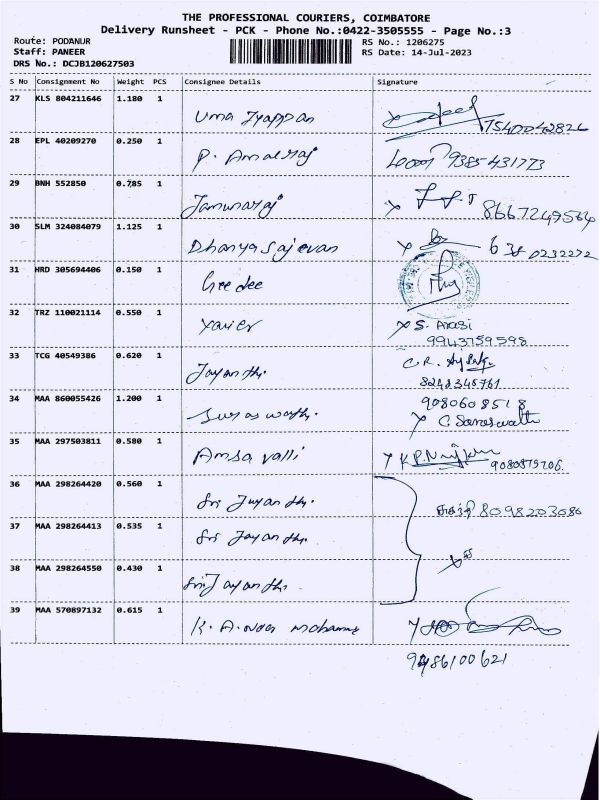 THE PROFESSIONAL COURIERS, COIMBATORE
Delivery Runsheet - PCK - Phone No.:0422-3505555 - Page No.:3
Route: PODANUR
RS No.: 1206275
Staff: PANEER
RS Date: 14-Jul-2023
DRS No.: DCJB120627503
S No Consignment No Weight PCS Consignee Details Signature
27 KLS 804211646 1.180 1 Uma Iyappan
28 EPL 40209270 0.250 1 P. Amalraj 9385431773
29 BNH 552850 0.785 1 Jamunaraj 8667249564
30 SLM 324084079 1.125 1 Dhanya Sajeevan
31 HRD 305694406 0.150 1
32 TRZ 110021114 0.550 1 Xavier X S. Arasi
9943759598
33 TCG 40549386 0.620 1 Jayanthi. C.R.
8248346761
34 MAA 860055426 1.200 1 9080608518
X C. Saraswathi
35 MAA 297503811 0.580 1 Amsavalli X K.P.
36 MAA 298264420 0.560 1 Sri Jayanthi. 8098203086
37 MAA 298264413 0.535 1 Sri Jayanthi.
38 MAA 298264550 0.430 1 Sri Jayanthi.
39 MAA 570897132 0.615 1 K. A. Noor
9486100621